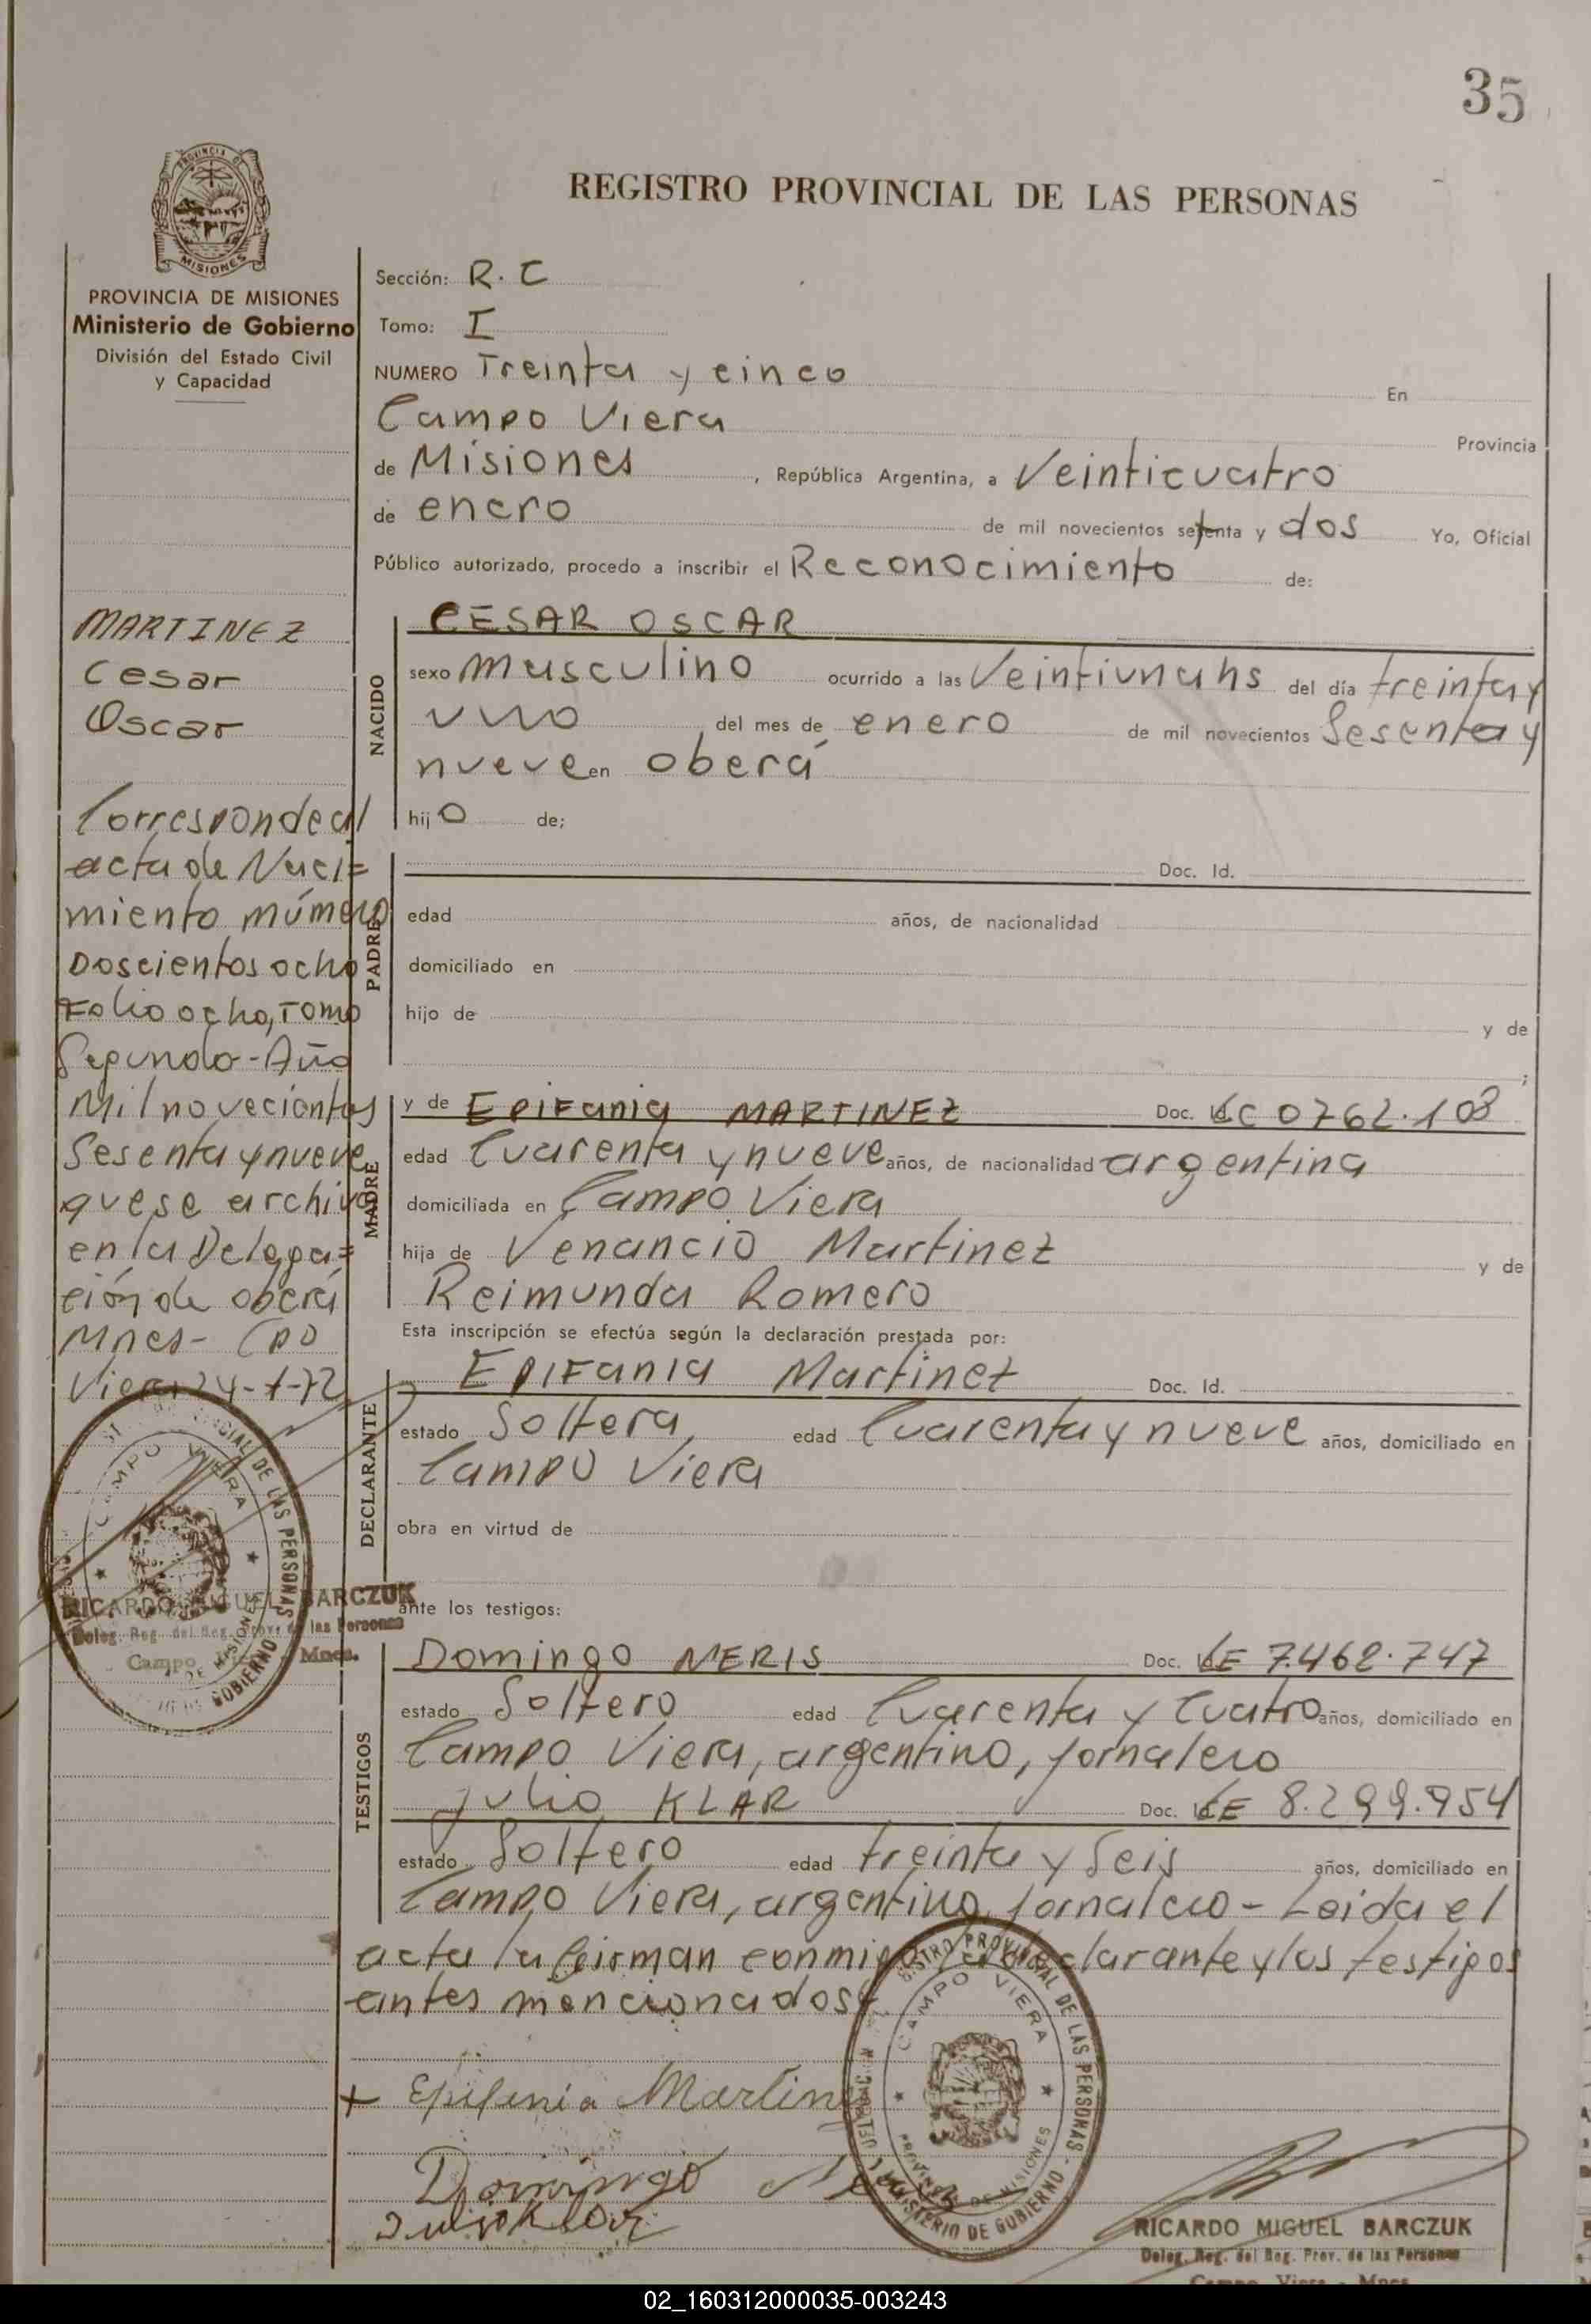 35
REGISTRO PROVINCIAL DE LAS PERSONAS
PROVINCIA DE
MISIONES
PROVINCIA DE MISIONES
Ministerio de Gobierno
División del Estado Civil
y Capacidad
Sección: R. C
Tomo: I
NUMERO Treinta y cinco En
Campo Viera Provincia
de Misiones, República Argentina, a Veinticuatro
de enero de mil novecientos setenta y dos Yo, Oficial
Público autorizado, procedo a inscribir el Reconocimiento de:
MARTINEZ
Cesar
Oscar
Corresponde al
acta de Naci=
miento número
Doscientos ocho
Folio ocho, Tomo
Segundo - Año
Mil novecientos
Sesenta y nueve
que se archiva
en la Delega=
ción de oberá
Mnes - Cpo
Viera 24-1-72
NACIDO
CESAR OSCAR
sexo masculino ocurrido a las Veintiuna hs del día treinta y
uno del mes de enero de mil novecientos Sesenta y
nueve en oberá
hijo de;
PADRE
Doc. Id.
edad años, de nacionalidad
domiciliado en
hijo de y de
;
MADRE
y de Epifania MARTINEZ Doc. Id. LC 0762.108
edad Cuarenta y nueve años, de nacionalidad argentina
domiciliada en Campo Viera
hija de Venancio Martinez y de
Reimunda Romero
Esta inscripción se efectúa según la declaración prestada por:
DECLARANTE
Epifania Martinez Doc. Id.
estado Soltera edad Cuarenta y nueve años, domiciliado en
Campo Viera
obra en virtud de
ante los testigos:
TESTIGOS
Domingo NERIS Doc. Id. LE 7.462.747
estado Soltero edad Cuarenta y Cuatro años, domiciliado en
Campo Viera, argentino, jornalero
Julio KLAR Doc. Id. LE 8.299.954
estado Soltero edad treinta y Seis años, domiciliado en
Campo Viera, argentino, jornalero - Leida el
acta la firman conmigo la declarante y los testigos
antes mencionados
CAMPO VIERA
DE LAS PERSONAS
GOBIERNO
RICARDO MIGUEL BARCZUK
Deleg. Reg. del Reg. Prov. de las Personas
Campo Mnes.
+ Epifania Martin
Domingo Ne
Julio Klar
REGISTRO PROVINCIAL DE LAS PERSONAS - MINISTERIO DE GOBIERNO
CAMPO VIERA
PROVINCIA DE MISIONES
RICARDO MIGUEL BARCZUK
Deleg. Reg. del Reg. Prov. de las Personas
Campo Viera - Mnes.
02_160312000035-003243